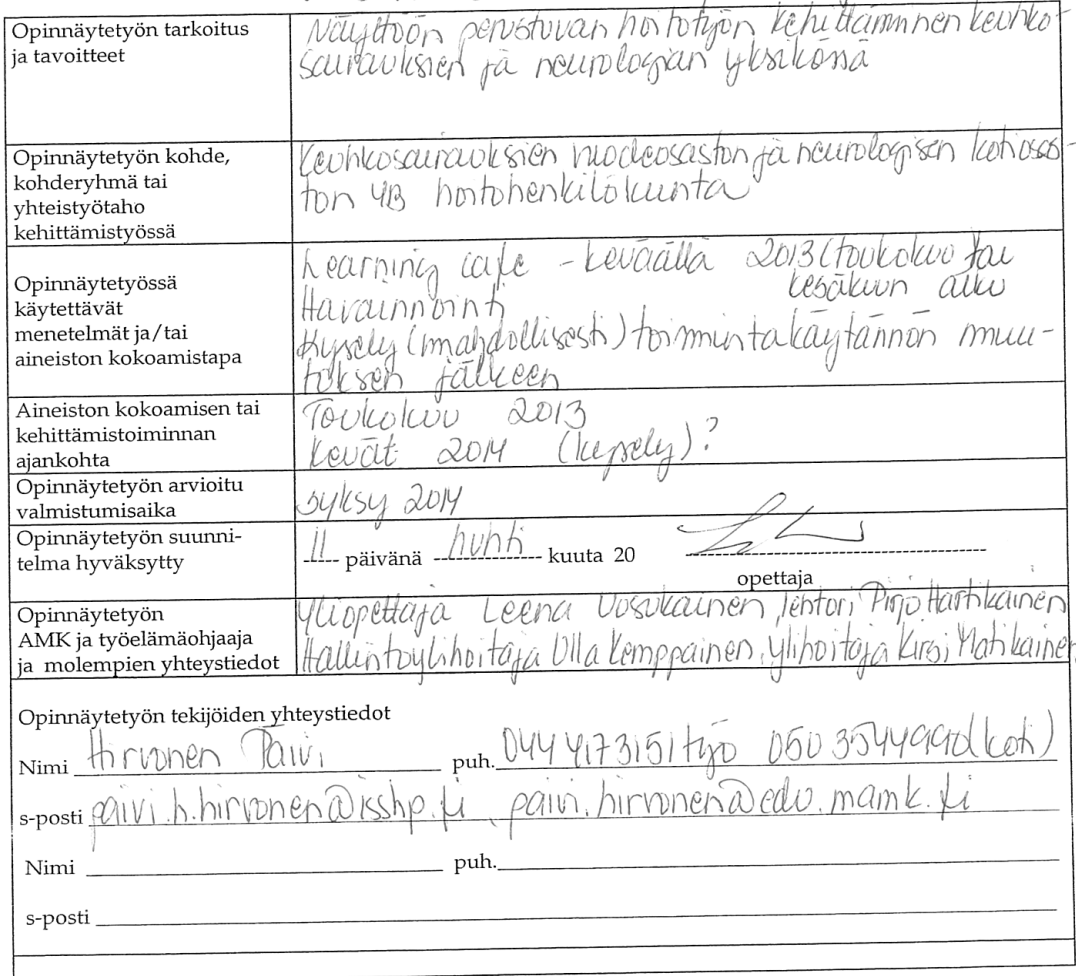 Opinnäytetyön tarkoitus
ja tavoitteet
Näyttöön perustuvan hoitotyön kehittäminen keuhko-
sairauksien ja neurologian yksikössä
Opinnäytetyön kohde,
kohderyhmä tai
yhteistyötaho
kehittämistyössä
Keuhkosairauksien vuodeosaston ja neurologisen kotiosas-
ton 4B hoitohenkilökunta
Opinnäytetyössä
käytettävät
menetelmät ja/tai
aineiston kokoamistapa
Learning cafe - keväällä 2013 (toukokuu tai
kesäkuun alku
Havainnointi
Kysely (mahdollisesti) toimintakäytännön muu-
toksen jälkeen
Aineiston kokoamisen tai
kehittämistoiminnan
ajankohta
Toukokuu 2013
Kevät 2014 (kysely)?
Opinnäytetyön arvioitu
valmistumisaika
syksy 2014
Opinnäytetyön suunni-
telma hyväksytty
11 päivänä huhti kuuta 20
opettaja
Opinnäytetyön
AMK ja työelämäohjaaja
ja molempien yhteystiedot
Yliopettaja Leena Uosukainen, lehtori Pirjo Hartikainen
Hallintoylihoitaja Ulla Kemppainen, ylihoitaja Kirsi Matikainen
Opinnäytetyön tekijöiden yhteystiedot
Nimi Hirvonen Päivi puh. 044 4173151 työ 050 3544990 (koti)
s-posti paivi.h.hirvonen@isshp.fi, paivi.hirvonen@edu.mamk.fi
Nimi puh.
s-posti